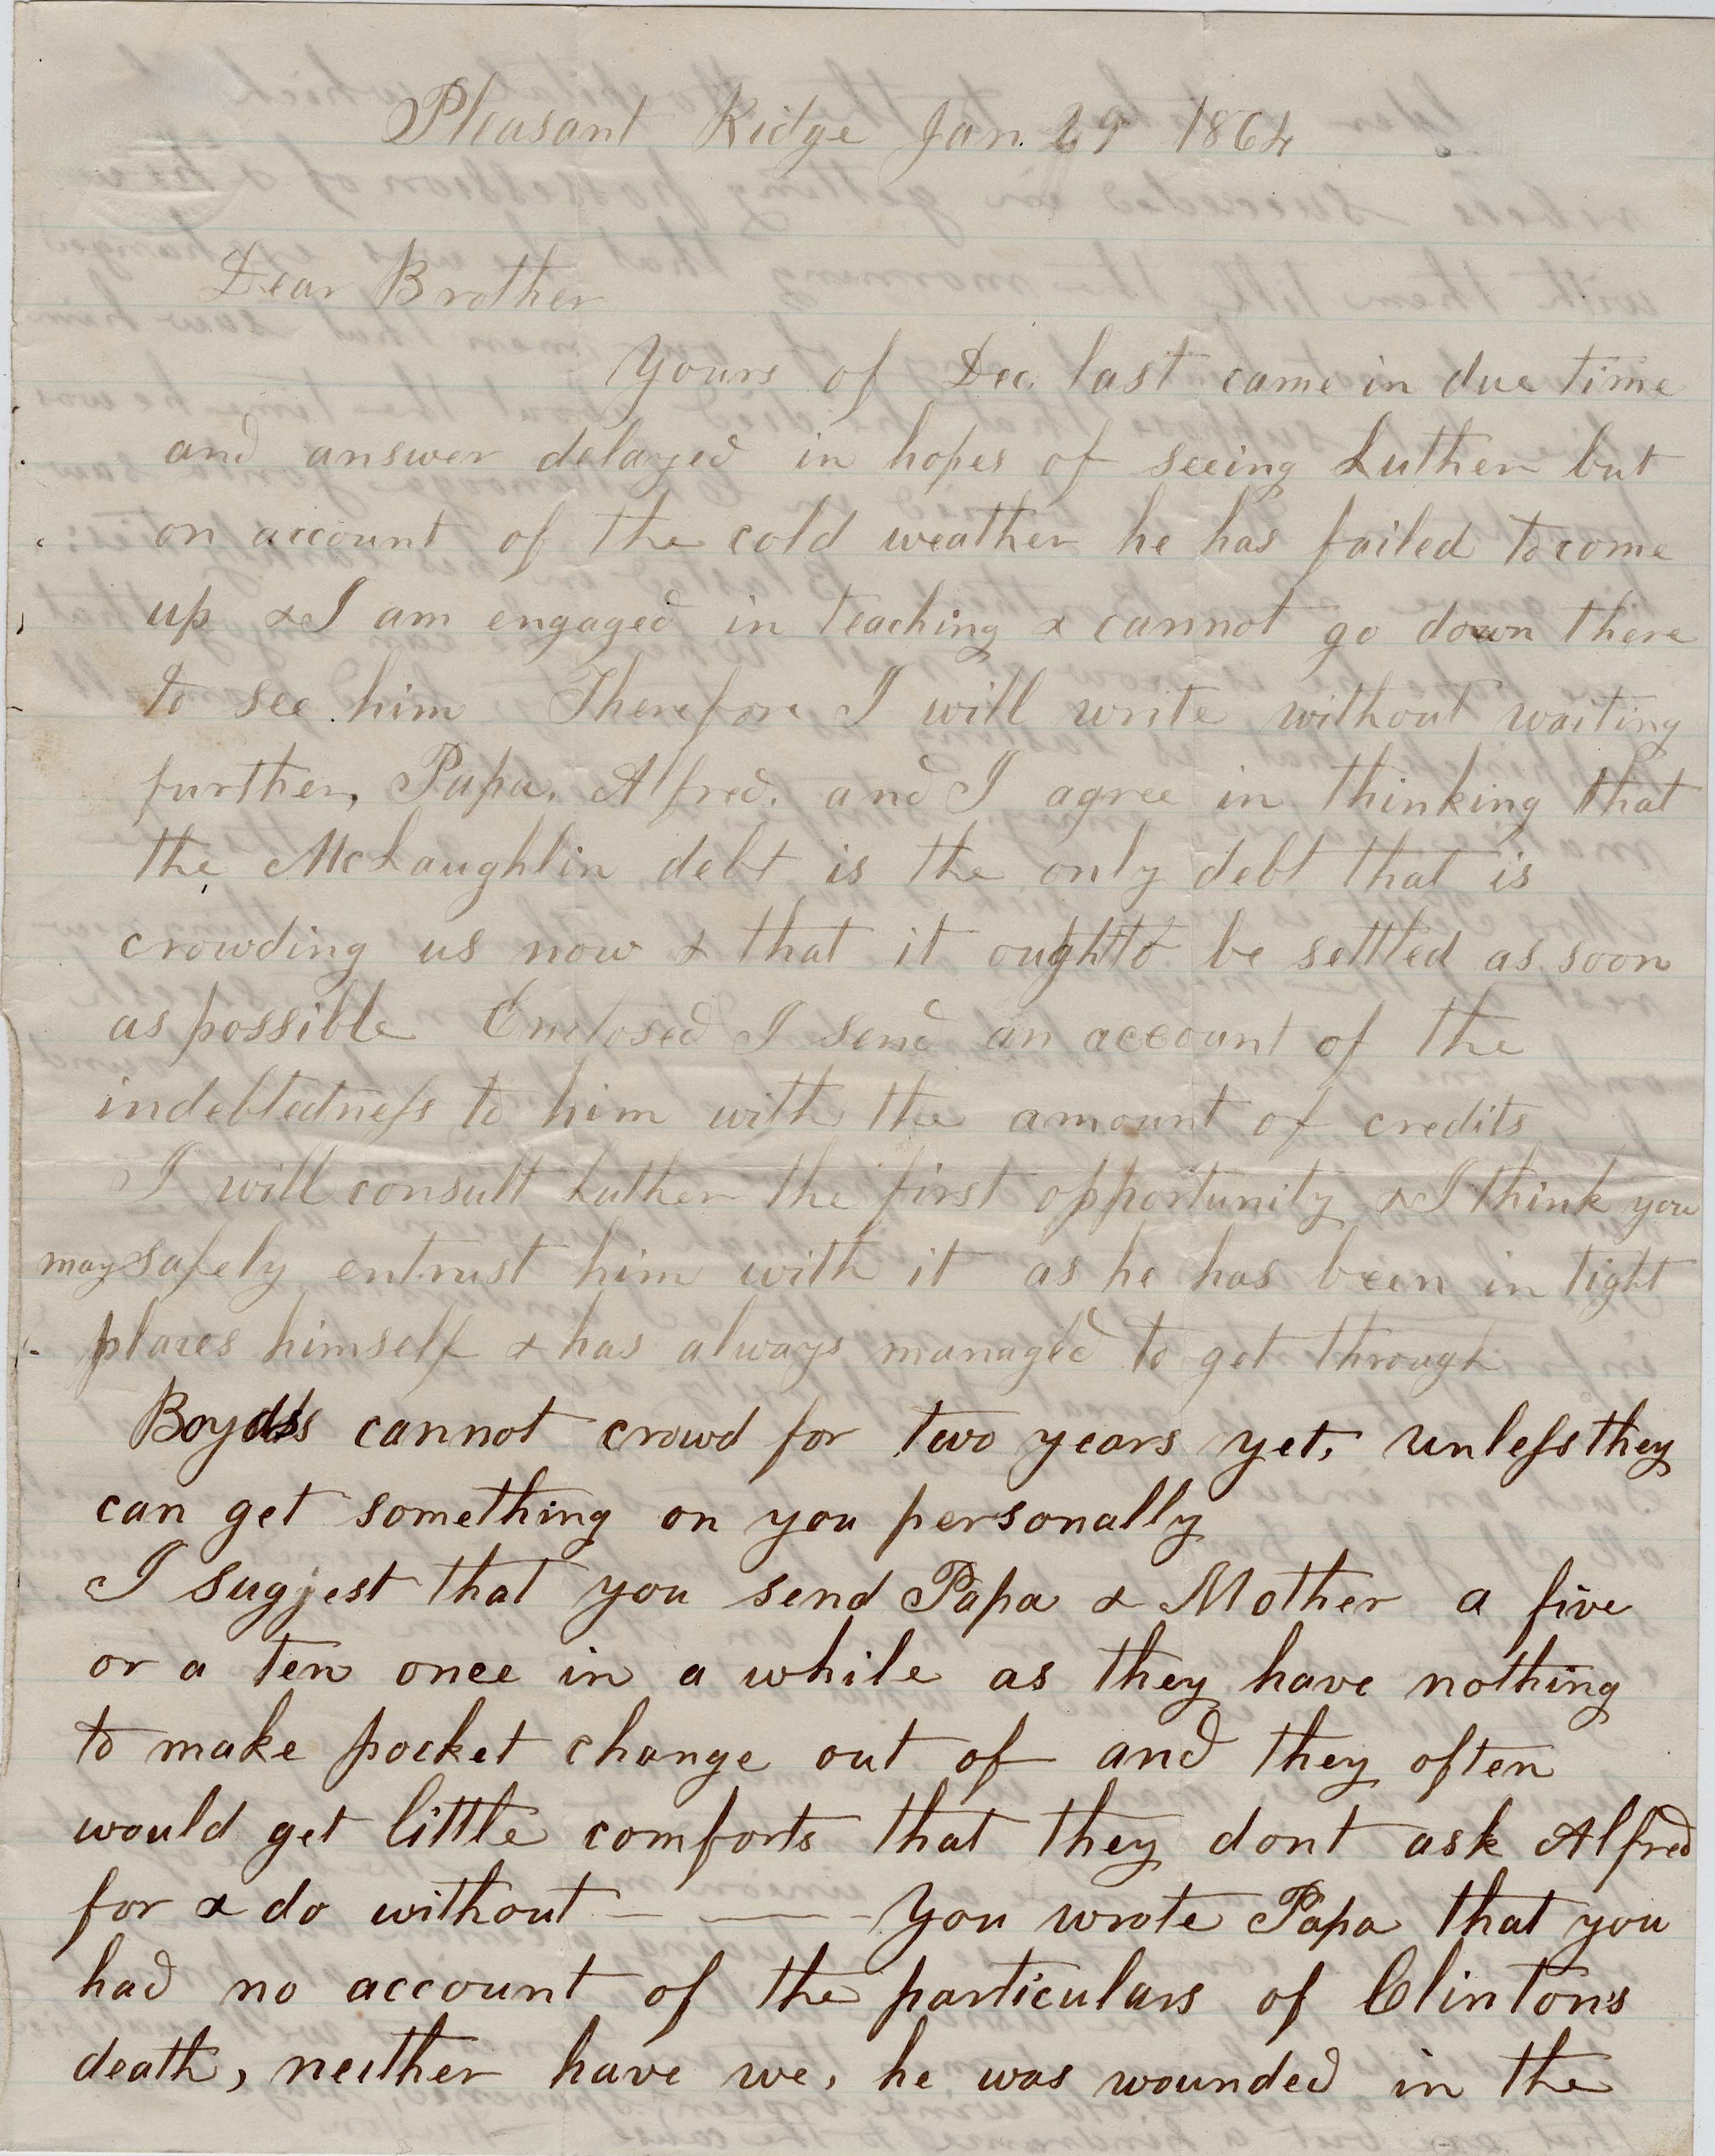 Pleasant Ridge Jan. 29 1864
Dear Brother
Yours of Dec. last came in due time
and answer delayed in hopes of seeing Luther but
on account of the cold weather he has failed to come
up & I am engaged in teaching & cannot go down there
to see him Therefore I will write without waiting
further, Papa, Alfred, and I agree in thinking that
the McLaughlin debt is the only debt that is
crowding us now & that it ought to be settled as soon
as possible Enclosed I send an account of the
indebtedness to him with the amount of credits
I will consult Luther the first opportunity & I think you
may safely entrust him with it as he has been in tight
places himself & has always managed to get through
Boyds cannot crowd for two years yet, unless they
can get something on you personally
I suggest that you send Papa & Mother a five
or a ten once in a while as they have nothing
to make pocket change out of and they often
would get little comforts that they dont ask Alfred
for & do without — — You wrote Papa that you
had no account of the particulars of Clintons
death, neither have we, he was wounded in the